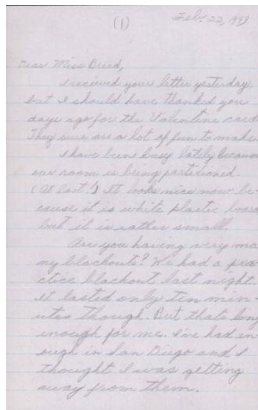 (1)
Feb. 22, 1943
Dear Miss Breed,
I received your letter yesterday
but I should have thanked you
days ago for the Valentine card
They sure are a lot of fun to make
I have been busy lately because
our room is being partitioned
(At last!) It looks nice now be-
cause it is white plastic board
but it is rather small
Are you having very ma
ny blackouts? We had a prac
ctice blackout last night.
It lasted only ten min-
utes though. But thats long
enough for me. I've had en
ough in San Diego and I
thought I was getting
away from them.